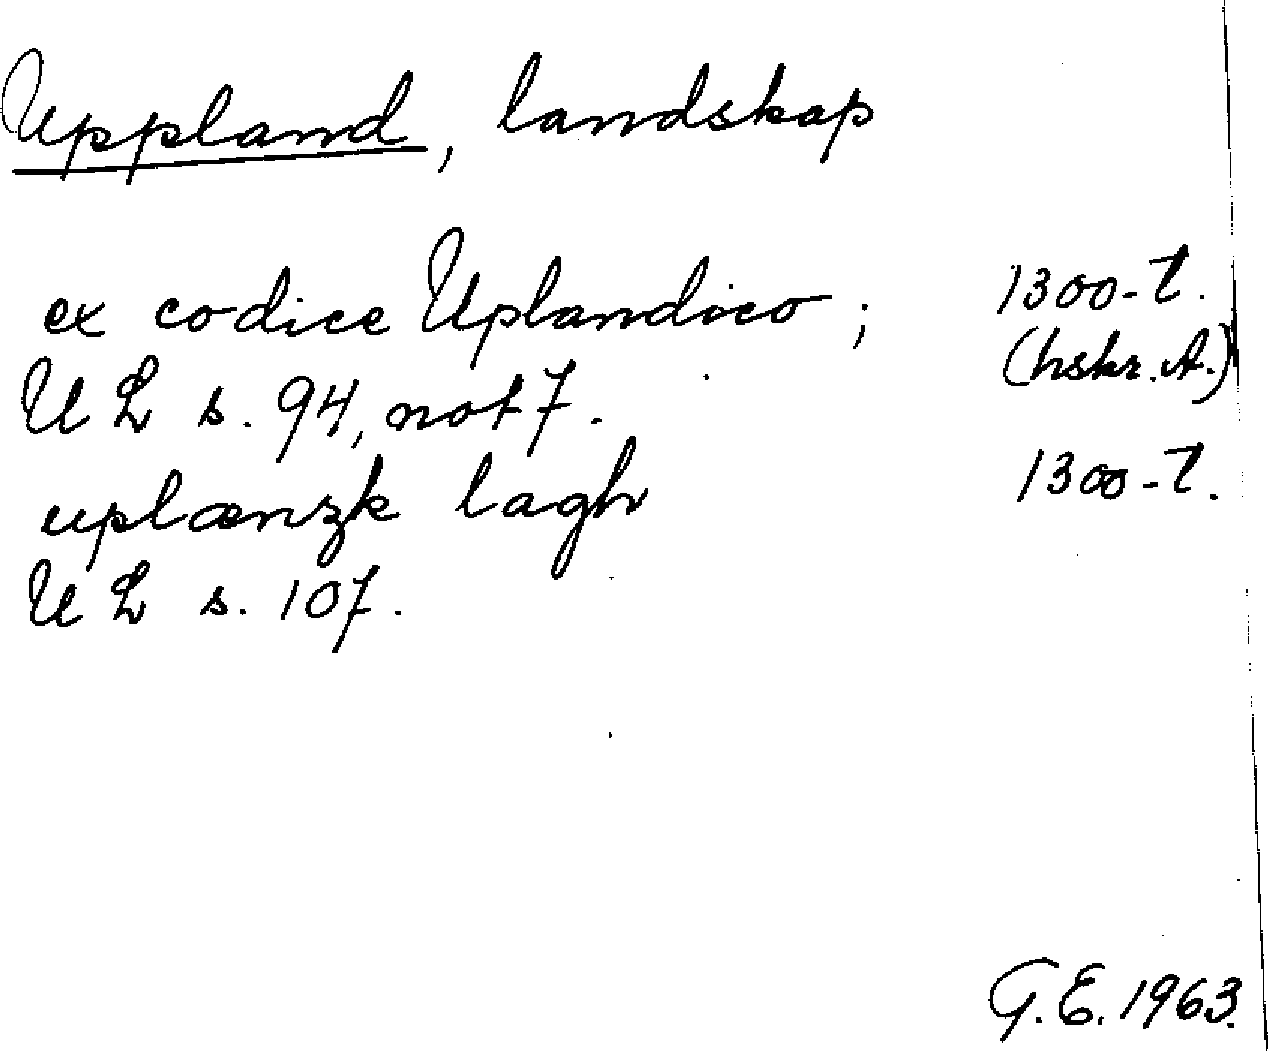 Uppland, landskap
ex codice Uplandico; 1300-t.
(hskr. A.)
U L s. 94, not 7.
uplænzk lagh 1300-t.
U L s. 107.
G.E. 1963.